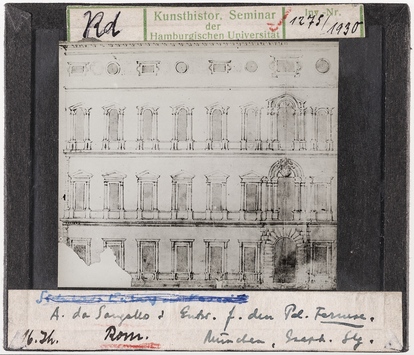 Rd
Kunsthistor. Seminar
der
Hamburgischen Universität
Inv. Nr.
1275/1930
A. da Sangallo: Entw. f. den Pal. Farnese.
16. Jh. Rom. München, Graph. Slg.